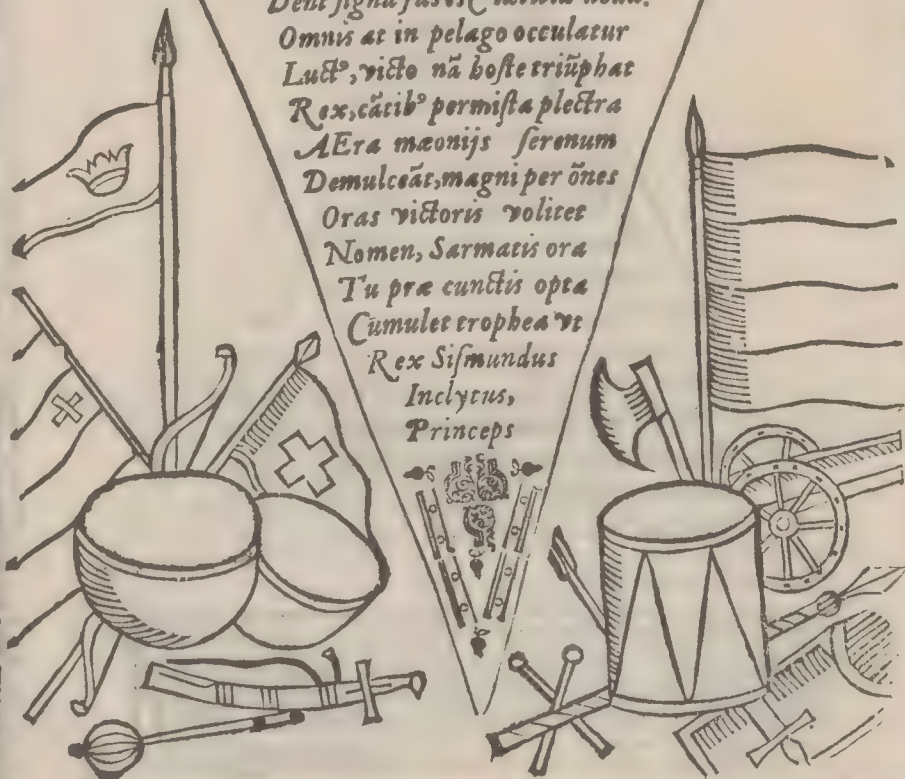 Dent ſigna
Omnis at in pelago occulatur
Luctꝰ, victo nã hoſte triũphat
Rex, cãtibꝰ permiſta plectra
AEra mæonijs ſerenum
Demulceãt, magni per õnes
Oras victoris volitet
Nomen, Sarmatis ora
Tu præ cunctis opta
Cumulet trophea vt
Rex Siſmundus
Inclytus,
Princeps